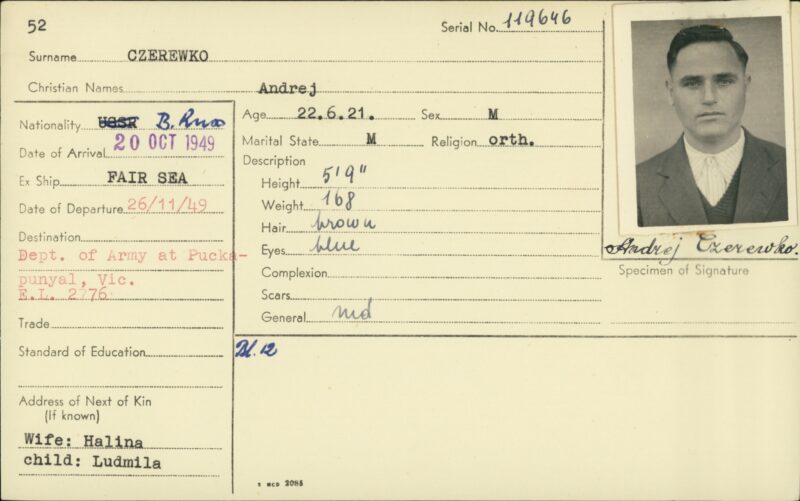 52
Serial No. 119646
Surname CZEREWKO
Christian Names Andrej
Nationality USSR B. Russ
Age 22.6.21. Sex M
Date of Arrival 20 OCT 1949
Marital State M Religion orth.
Description
Ex Ship FAIR SEA
Height 5'9"
Date of Departure 26/11/49
Weight 168
Hair brown
Destination
Eyes blue
Dept. of Army at Pucka-
punyal, Vic.
E.L. 2776
Complexion
Scars
General
Andrej Czerewko.
Specimen of Signature
Trade
Standard of Education
Bl. 12
Address of Next of Kin
(If known)
Wife: Halina
child: Ludmila
S MCD 2085